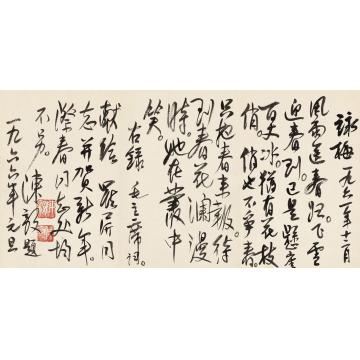 詠梅 一九六一年十二月
風雨送春归飞雪
迎春到已是懸崖
百丈冰猶有花枝
俏。俏也不争春
只把春来報待
到春花瀾漫
時她在叢中
笑。
右録 毛主席詞。
献给 同
志并贺新年。
際春同志处均
不另。陳毅題
一九六六年元旦